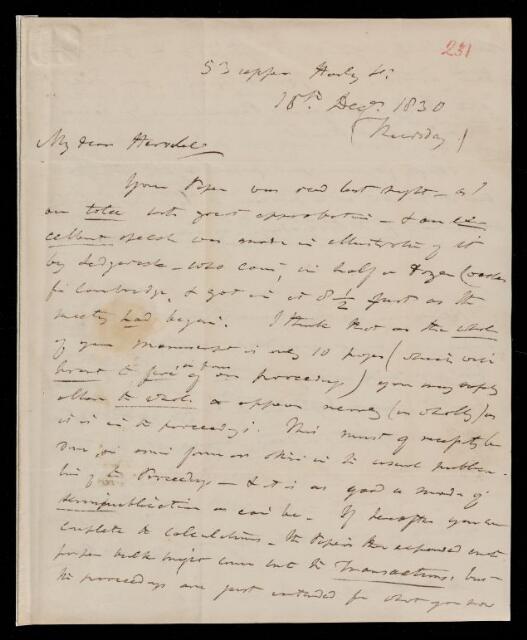 231
53 upper Harley St.
16th Decr. 1830
(Thursday)
My dear Herschel
Your Paper was read last night – as I
am told with great approbation – & an ex-
cellent speech was made in illustration of it
by Sedgwick – who came, in half a dozen
fm Cambridge, & got in at 8 1/2 just as the
meeting had begun. I think that as the whole
of your manuscript is only 10 pages (which will
amount to of our proceedings) you may safely
allow the whole to appear (or wholly) as
it is in the proceedings. This must of necessity be
in the usual publica-
tion of the Proceedings – & it is as good a mode of
semipublication as can be. If hereafter you can
complete the calculations – the Paper then expanded
might come into the Transactions, but
the proceedings are just intended for what you now